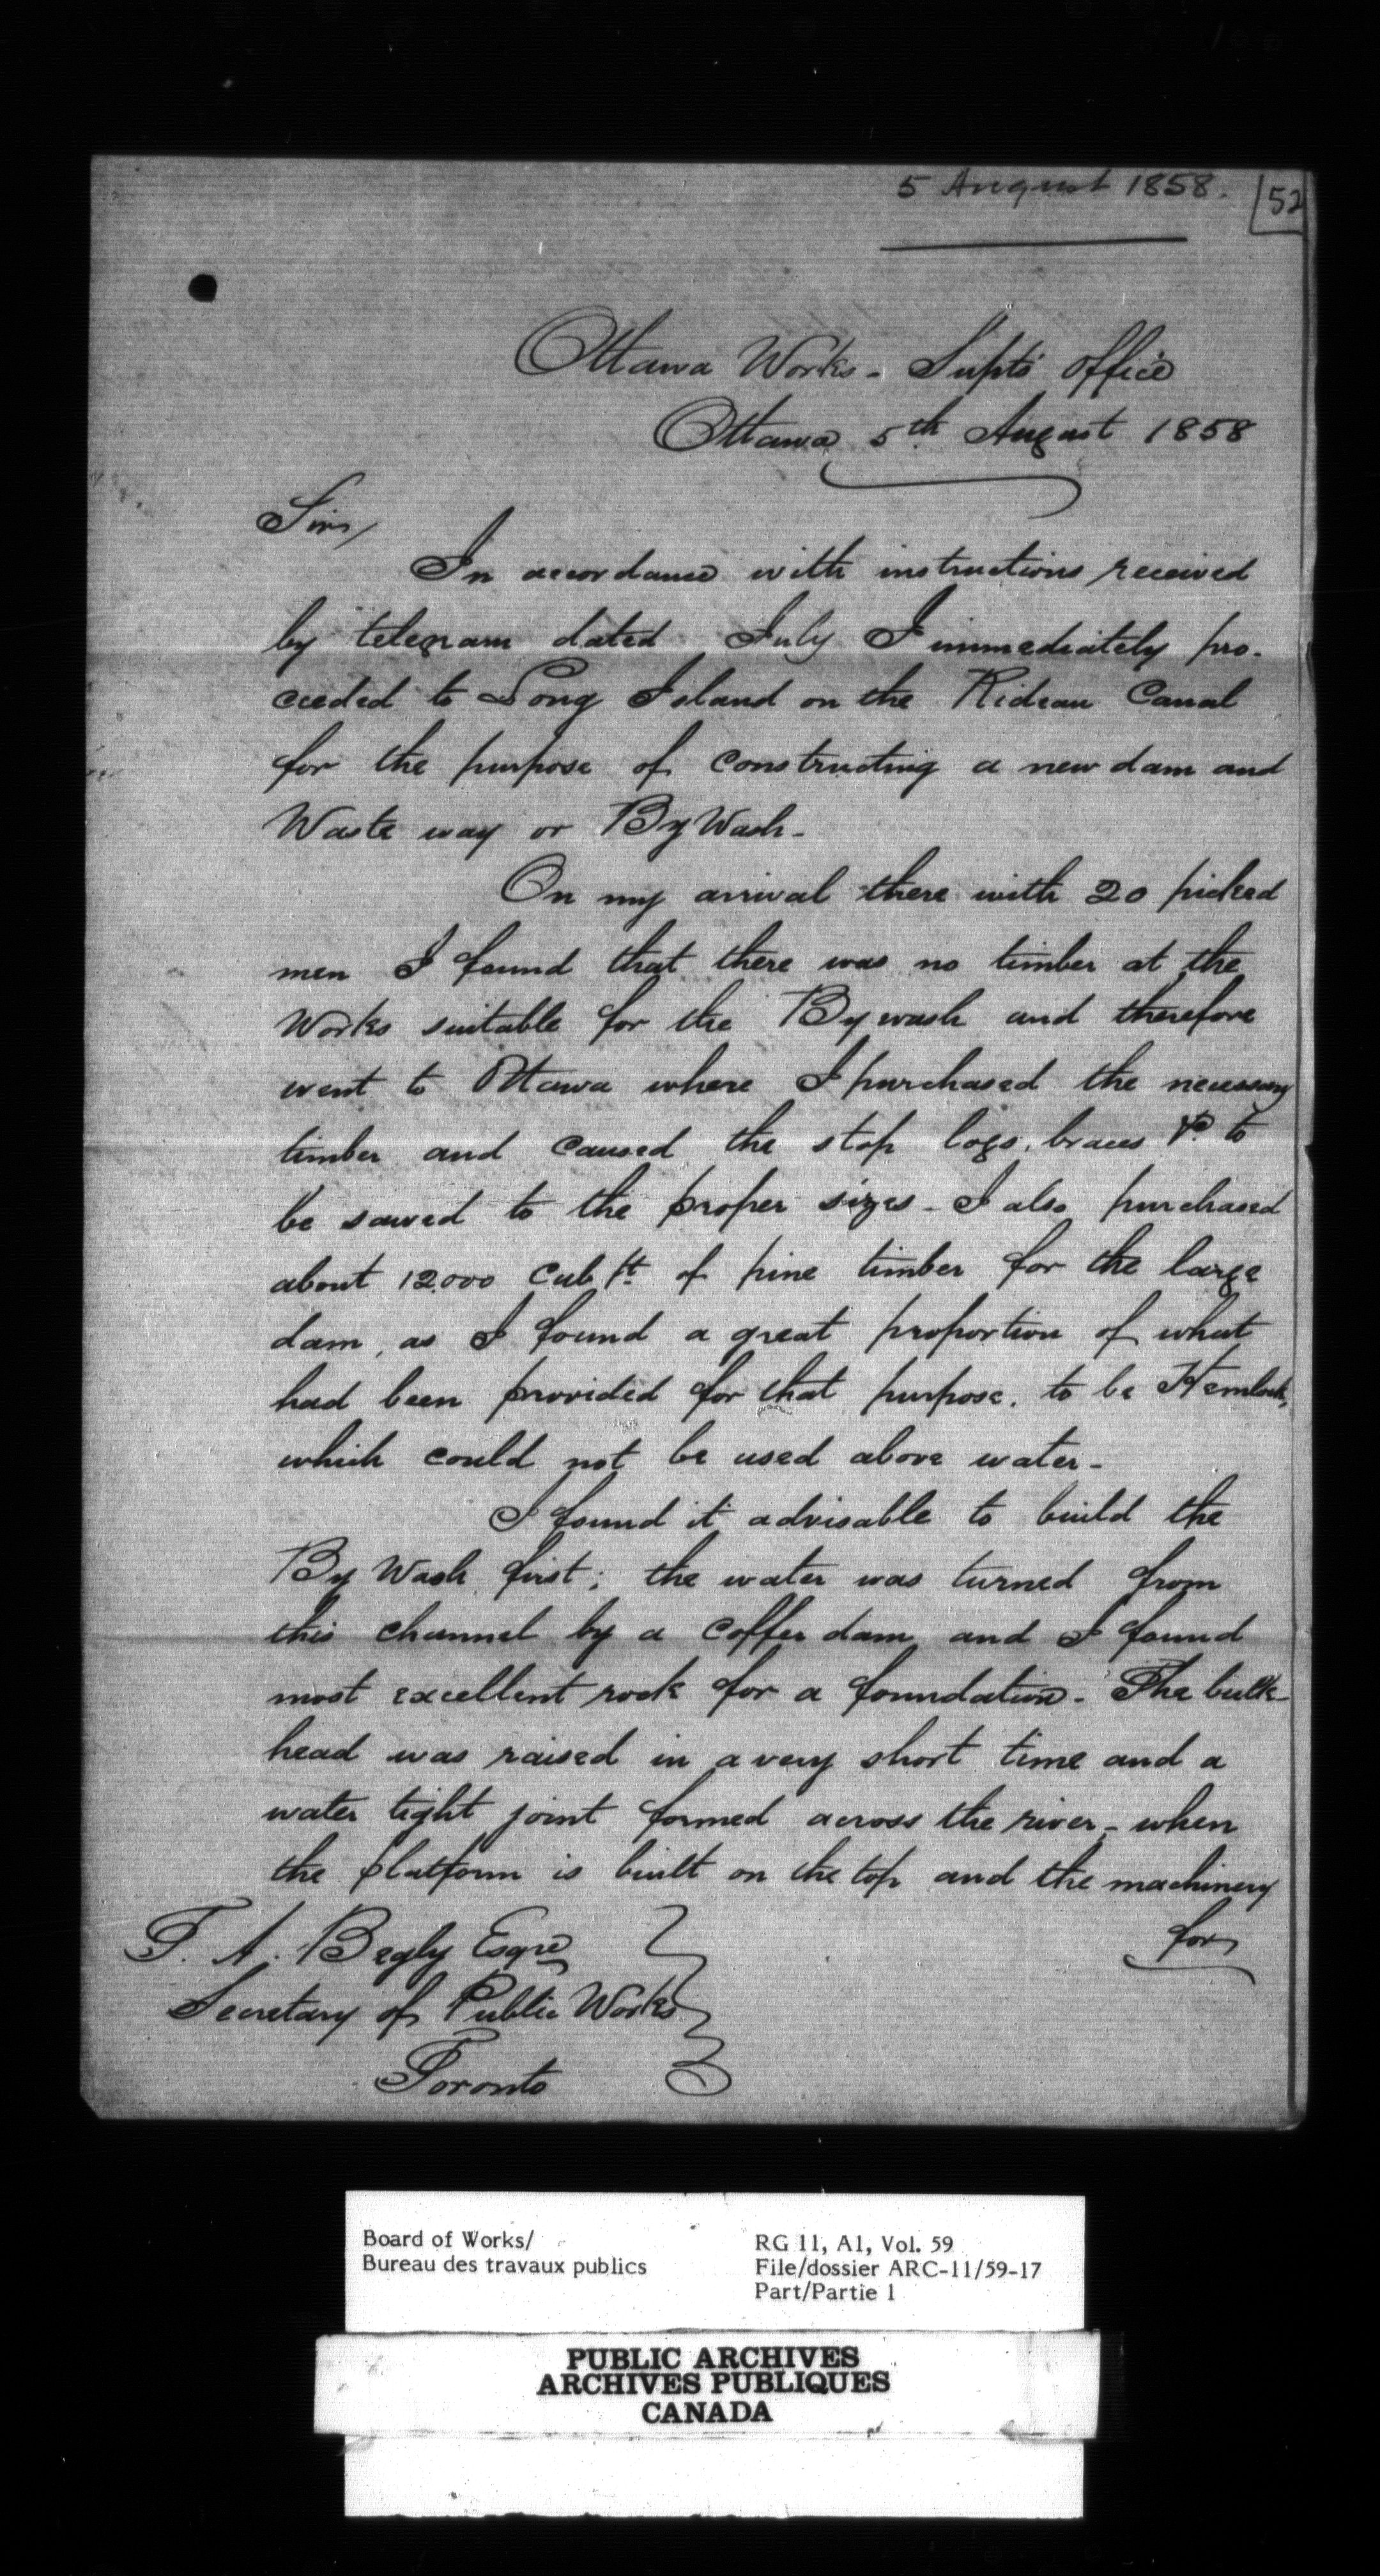 5 August 1858.
52
Ottawa Works - Supts office
Ottawa 5th August 1858
Sir,
In accordance with instructions received
by telegram dated July I immediately pro-
ceeded to Long Island on the Rideau Canal
for the purpose of constructing a new dam and
Waste way or By Wash -
On my arrival there with 20 picked
men I found that there was no timber at the
Works suitable for the Bywash and therefore
went to Ottawa where I purchased the necessary
timber and caused the stop logs, braces &c. to
be sawed to the proper sizes - I also purchased
about 12,000 Cub. ft. of pine timber for the large
dam, as I found a great proportion of what
had been provided for that purpose, to be Hemlock,
which could not be used above water -
I found it advisable to build the
By Wash first; the water was turned from
this channel by a coffer dam and I found
most excellent rock for a foundation - The bulk-
head was raised in a very short time and a
water tight joint formed across the river - when
the platform is built on the top and the machinery
for
T. A. Begly Esqre
Secretary of Public Works
Toronto
Board of Works/
Bureau des travaux publics
RG 11, A1, Vol. 59
File/dossier ARC-11/59-17
Part/Partie 1
PUBLIC ARCHIVES
ARCHIVES PUBLIQUES
CANADA